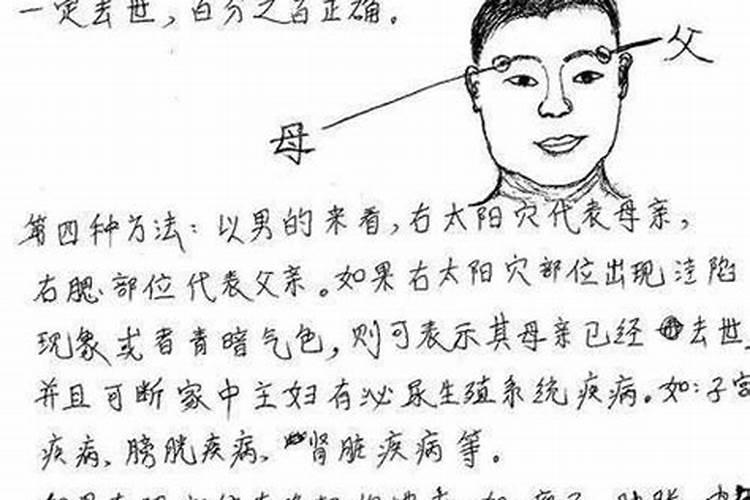 一定去世,百分之百正确。
父
母
第四种方法:以男的来看,右太阳穴代表母亲,
右腮部位代表父亲。如果右太阳穴部位出现洼陷
现象或者青暗气色,则可表示其母亲已经去世,
并且可断家中主妇有泌尿生殖系统疾病。如:子宫
疾病、膀胱疾病、肾脏疾病等。